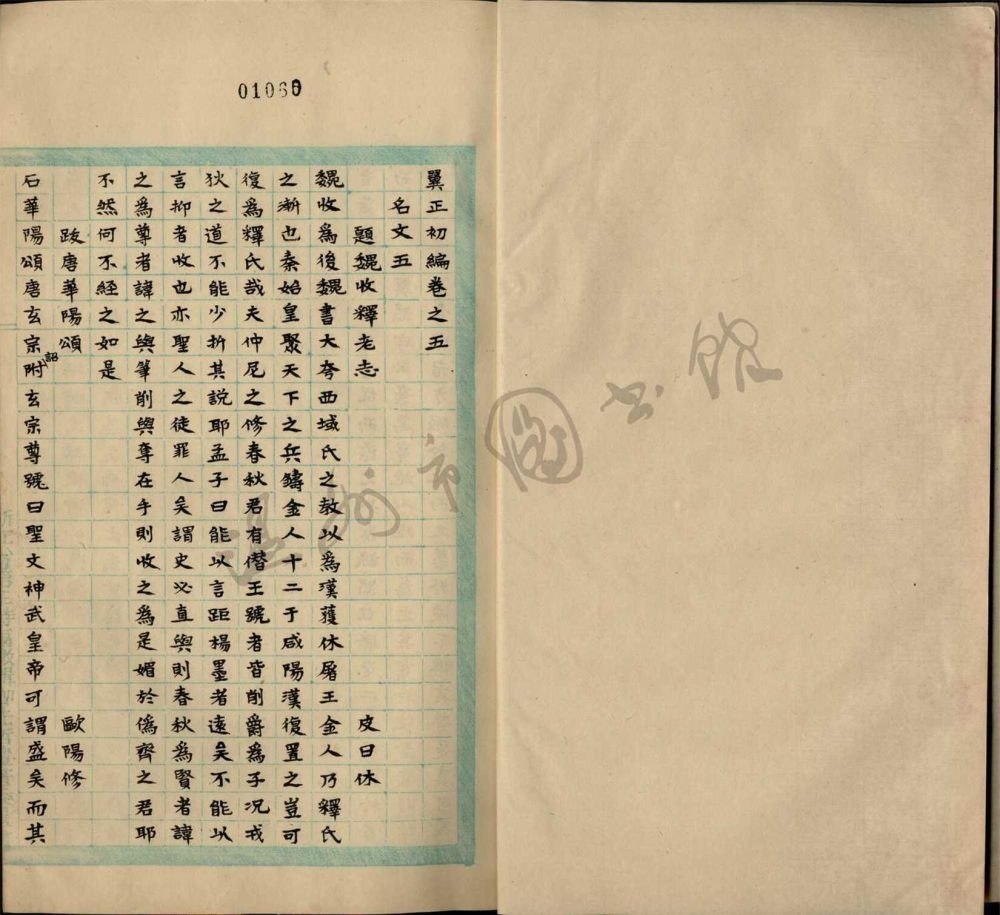 01060
翼正初編卷之五
名文五
題魏收釋老志 皮日休
魏收爲後魏書大夸西域氏之教以爲漢獲休屠王金人乃釋氏
之漸也秦始皇聚天下之兵鑄金人十二于咸陽漢復置之豈可
復爲釋氏哉夫仲尼之修春秋君有僭王號者皆削爵爲子况戎
狄之道不能少折其説耶孟子曰能以言距楊墨者遠矣不能以
言抑者收也亦聖人之徒罪人矣謂史必直與則春秋爲賢者諱
之爲尊者諱之與筆削與奪在手則收之爲是媚於僞齊之君耶
不然何不經之如是
跋唐華陽頌 歐陽修
石華陽頌唐玄宗詔附玄宗尊號曰聖文神武皇帝可謂盛矣而其
溫州市圖書館